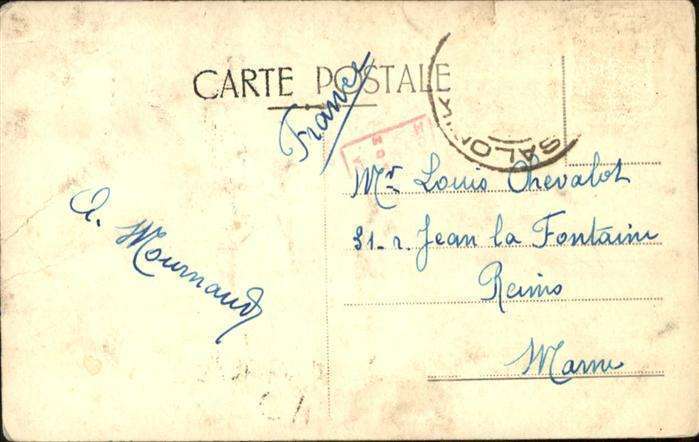 CARTE POSTALE
France
SALONI
Mr Louis Chevalot
31-r. Jean la Fontaine
Reims
Marne
A. Mournaud